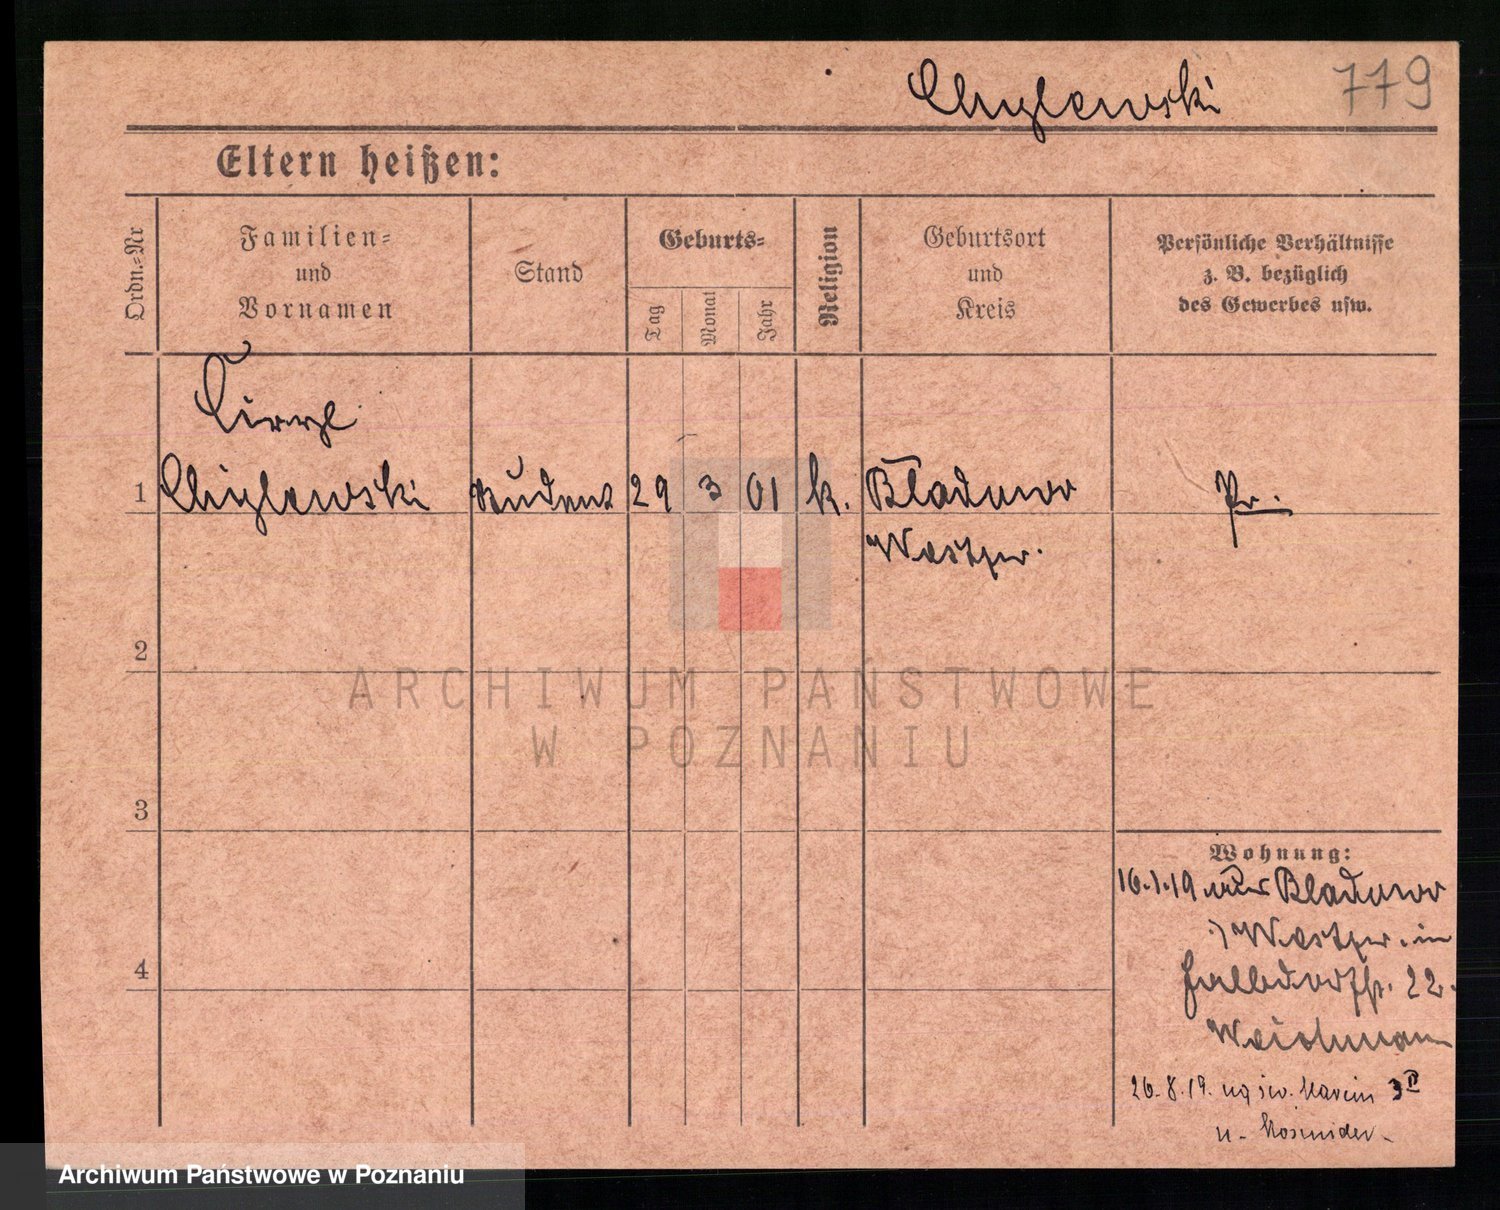 Chylewski 779
Eltern heißen:
Ordn.=Nr
Familien=
und
Vornamen
Stand
Geburts=
Tag
Monat
Jahr
Religion
Geburtsort
und
Kreis
Persönliche Verhältnisse
z. B. bezüglich
des Gewerbes usw.
1 Chylewski Student 29 3 01 k. Pr.
Westpr.
2
3
4
Wohnung:
16.1.19
Westpr. in
22.
26.8.19. na św. Marcin 3
u
ARCHIWUM PAŃSTWOWE
W POZNANIU
Archiwum Państwowe w Poznaniu